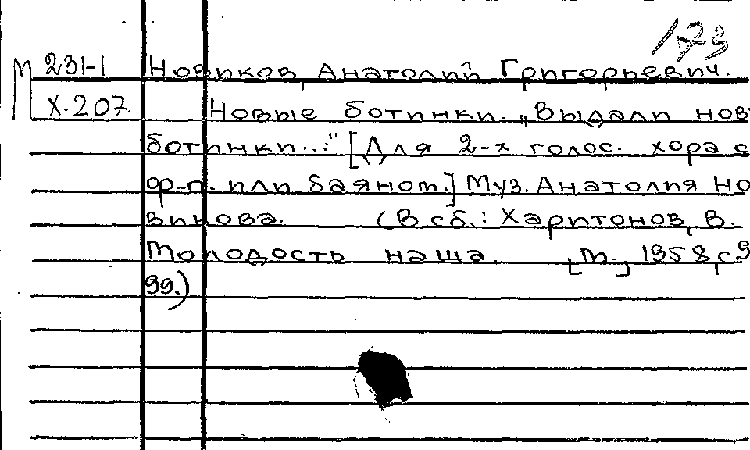 173
М 231-1 Новиков, Анатолий Григорьевич.
Х-207 Новые ботинки. „Выдали нов
ботинки..." [Для 2-х голос. хора с
ф-п. или баяном.] Муз. Анатолия Но
викова. (В сб.: Харитонов, В.
Молодость наша. [М.], 1958, с.9
99.)